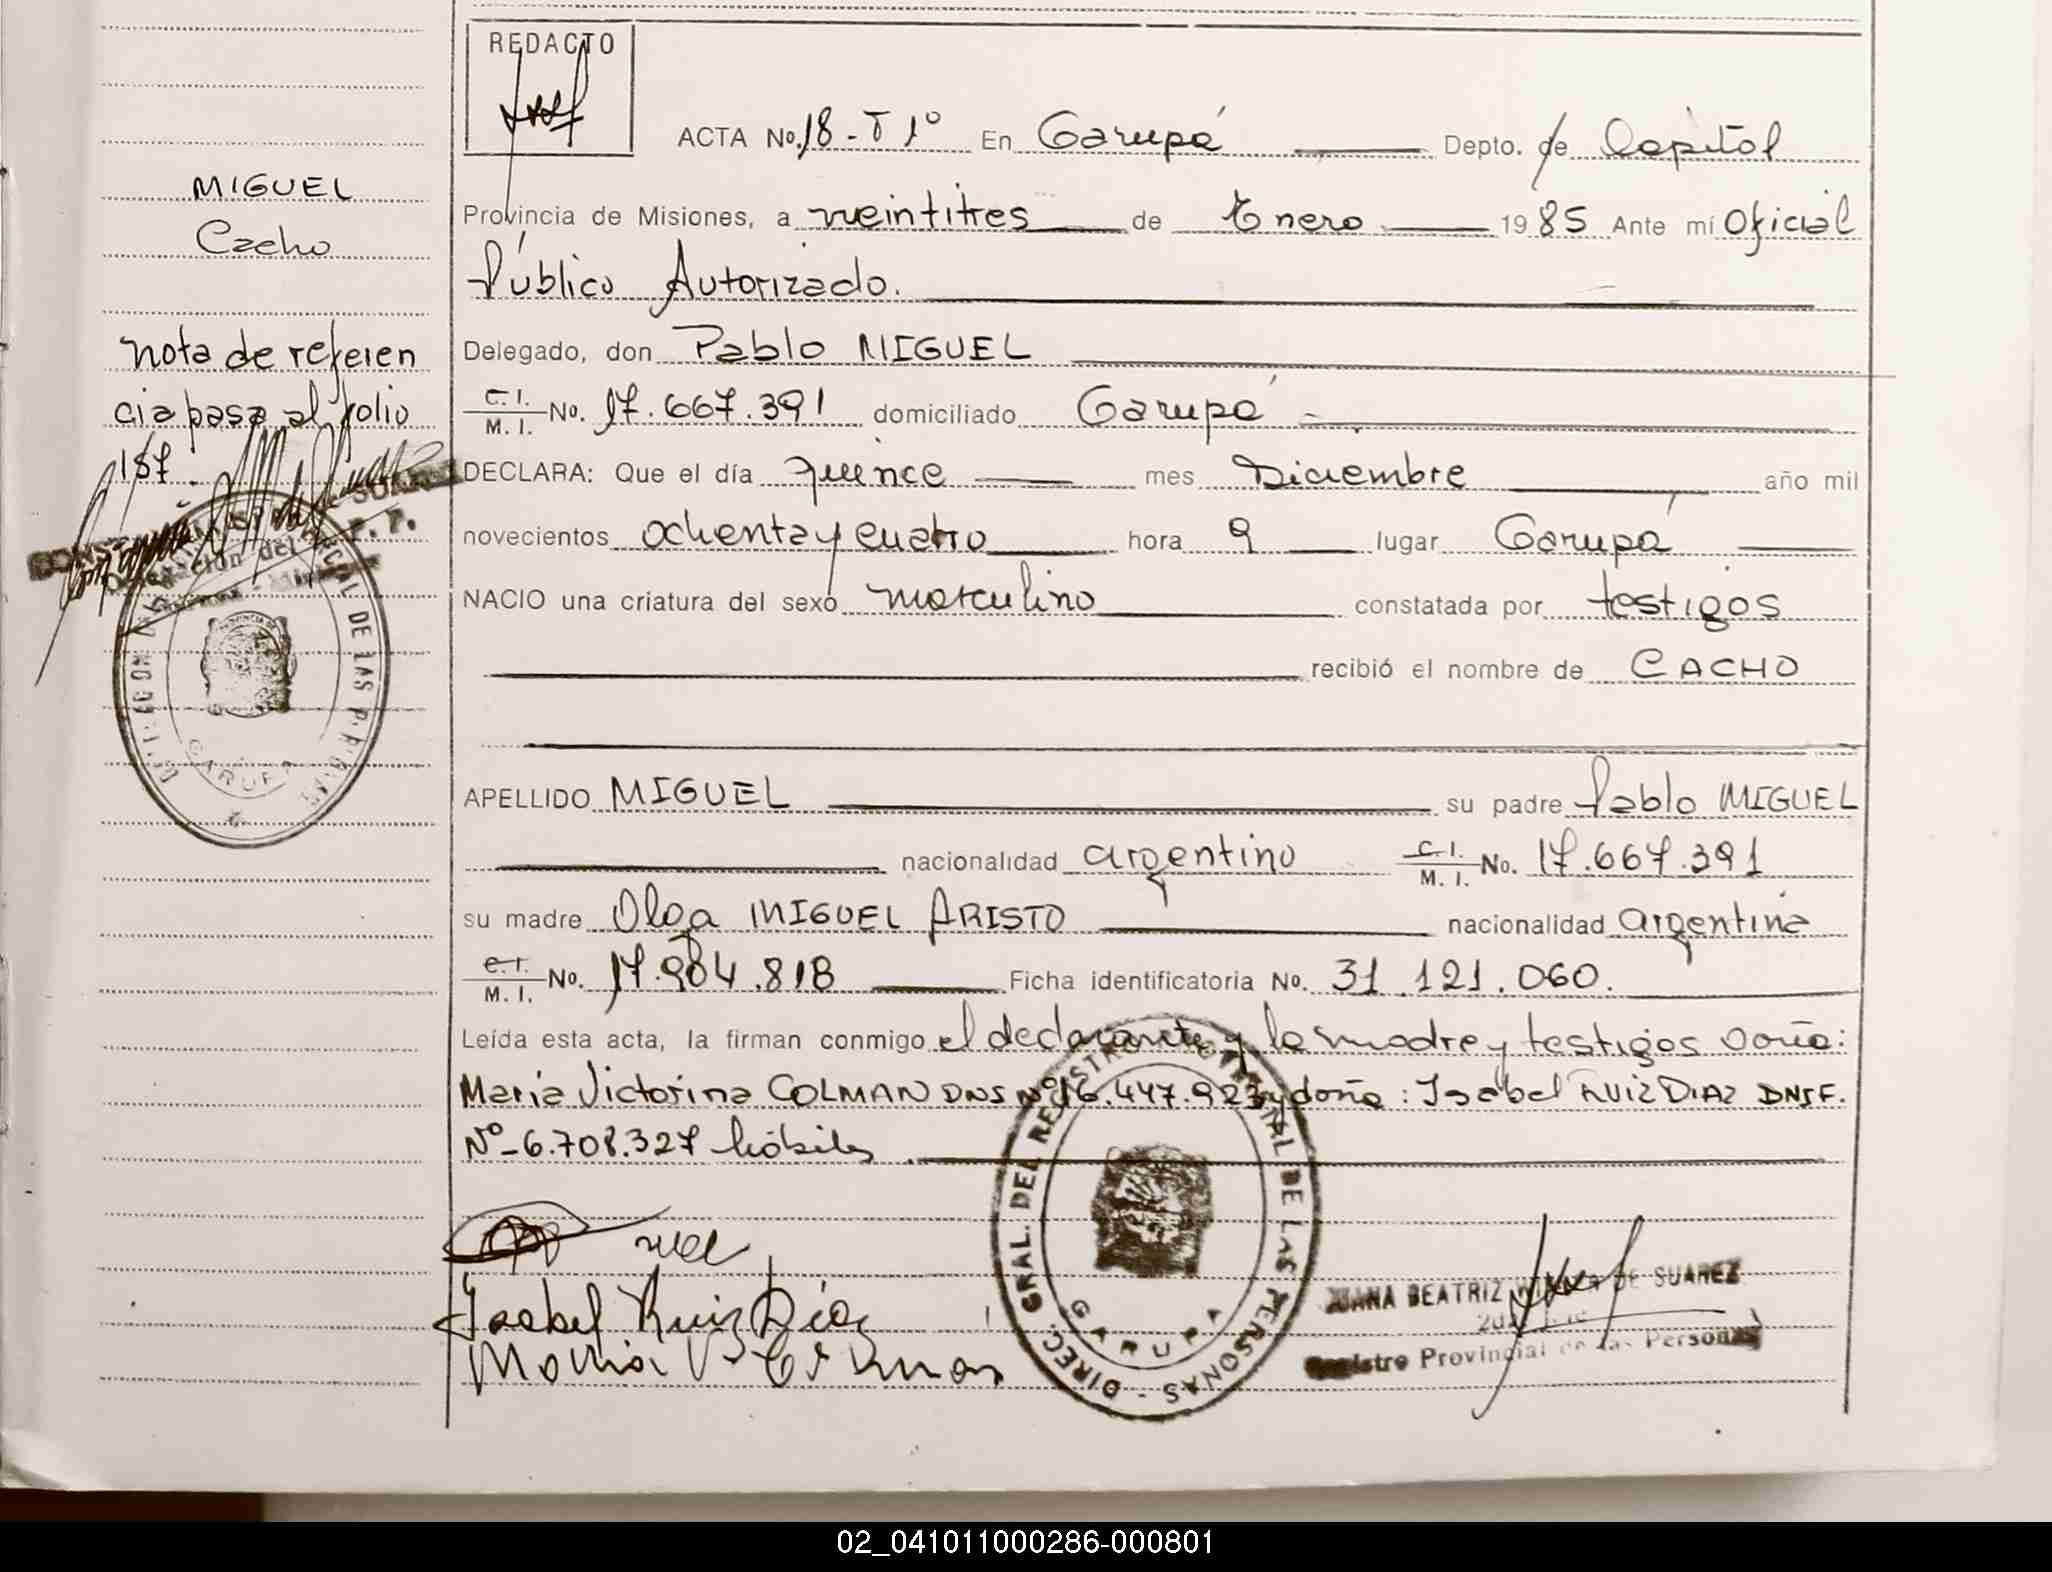 REDACTO
ACTA No. 18 - T 1º En Garupá Depto. de Capital
MIGUEL
Cacho
Provincia de Misiones, a veintitres de Enero 1985 Ante mí Oficial
Público Autorizado.
nota de referen
cia pasa al folio
157.
Delegado, don Pablo MIGUEL
C. I.
M. I. No. 17.667.391 domiciliado Garupá
DECLARA: Que el día quince mes Diciembre año mil
novecientos ochenta y cuatro hora 9 lugar Garupá
NACIO una criatura del sexo masculino constatada por testigos
recibió el nombre de CACHO
APELLIDO MIGUEL su padre Pablo MIGUEL
nacionalidad argentino C. I.
M. I. No. 17.667.391
su madre Olga MIGUEL ARISTO nacionalidad argentina
C. I.
M. I. No. 17.904.818 Ficha identificatoria No. 31.121.060.
Leída esta acta, la firman conmigo el declarante y la madre y testigos doña:
María Victorina COLMAN DNS Nº 16.447.923 y doña: Isabel RUIZ DIAZ DNIF.
Nº- 6.708.327 hábiles.
DELEGACION DEL PROVINCIAL DE LAS PERSONAS
GARUPA
DIREC. GRAL. DEL REGISTRO PROVINCIAL DE LAS PERSONAS -
GARUPA
Isabel Ruiz Díaz
JUANA BEATRIZ DE SUAREZ
Registro Provincial de las Personas
02_041011000286-000801